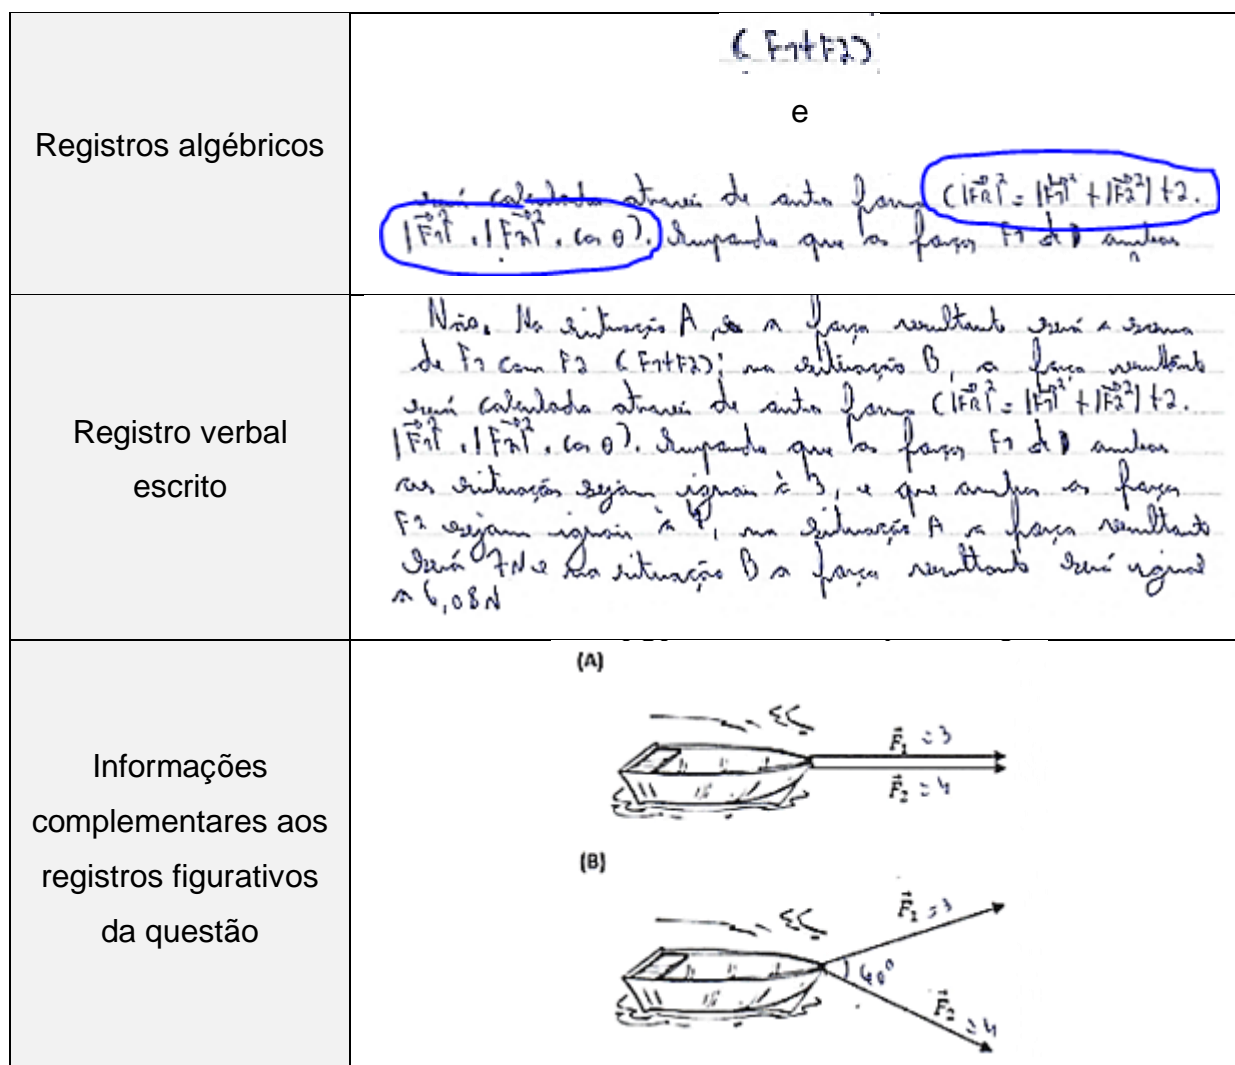 Registros algébricos
(F1+F2)
e
será calculada através de outra forma (|F⃗R|² = |F⃗1|² + |F⃗2²| + 2.
|F⃗1|² . |F⃗2|² . cos θ). Supondo que as forças F1 ambas
Registro verbal
escrito
Não. Na situação A, a força resultante será a soma
de F1 com F2 (F1+F2); na situação B, a força resultante
será calculada através de outra forma (|F⃗R|² = |F⃗1|² + |F⃗2²| + 2.
|F⃗1|² . |F⃗2|² . cos θ). Supondo que as forças F1 ambas
as situação sejam iguais à 3, e que ambas as forças
F2 sejam iguais à 4, na situação A a força resultante
será 7N e na situação B a força resultante será igual
a 6,08N
Informações
complementares aos
registros figurativos
da questão
(A)
F⃗1 = 3
F⃗2 = 4
(B)
= 3
60°
F⃗2 = 4